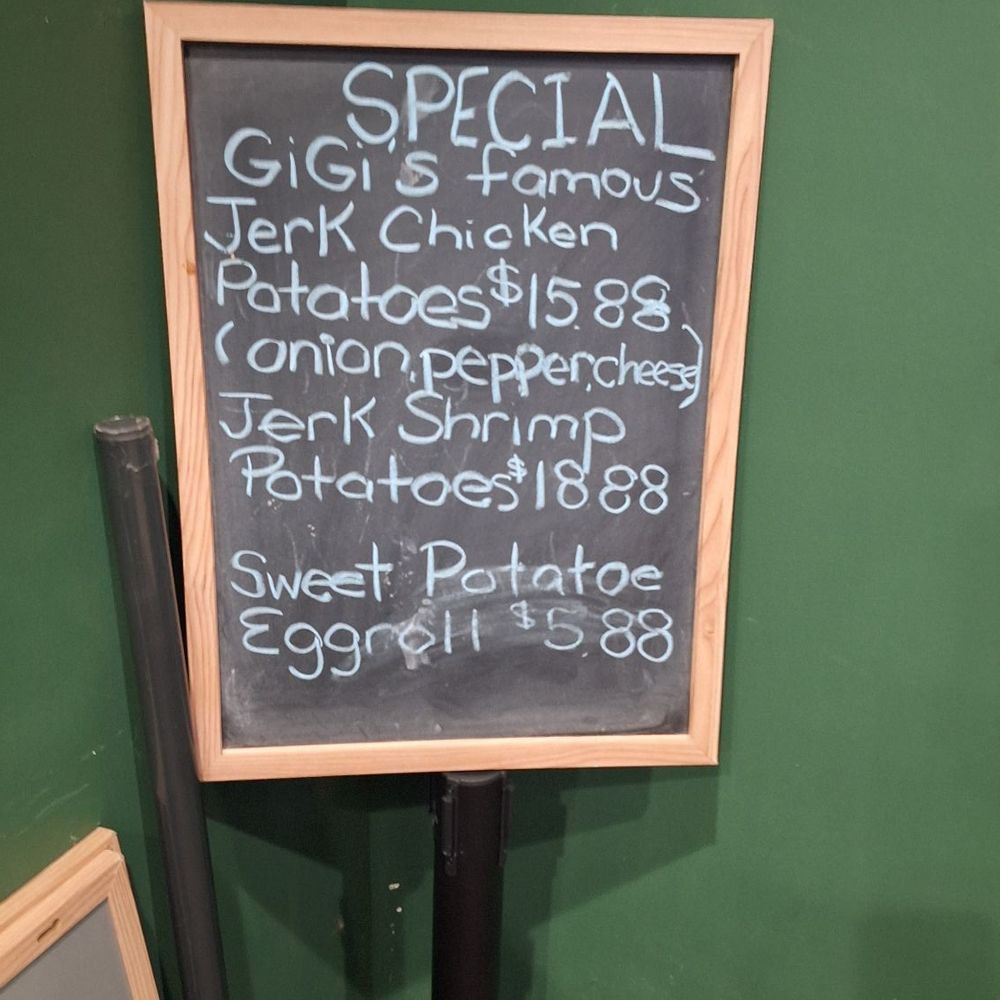 SPECIAL
GiGi's famous
Jerk Chicken
Potatoes $15.88
(onion, pepper, cheese)
Jerk Shrimp
Potatoes $18.88
Sweet Potatoe
Eggroll $5.88